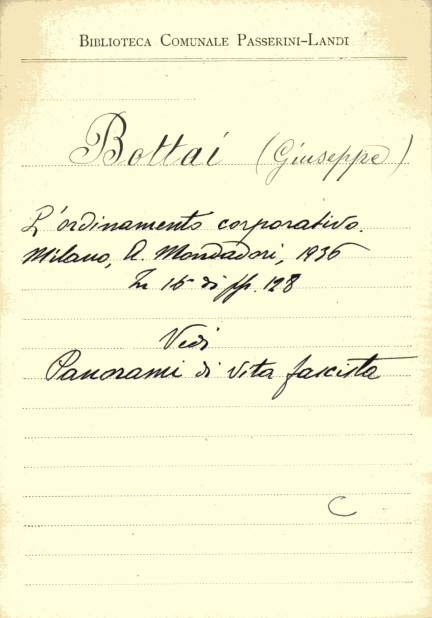 BIBLIOTECA COMUNALE PASSERINI-LANDI
Bottai (Giuseppe)
L'ordinamento corporativo.
Milano, A. Mondadori, 1936
In 16 di pp. 128
Vedi
Panorami di vita fascista
C